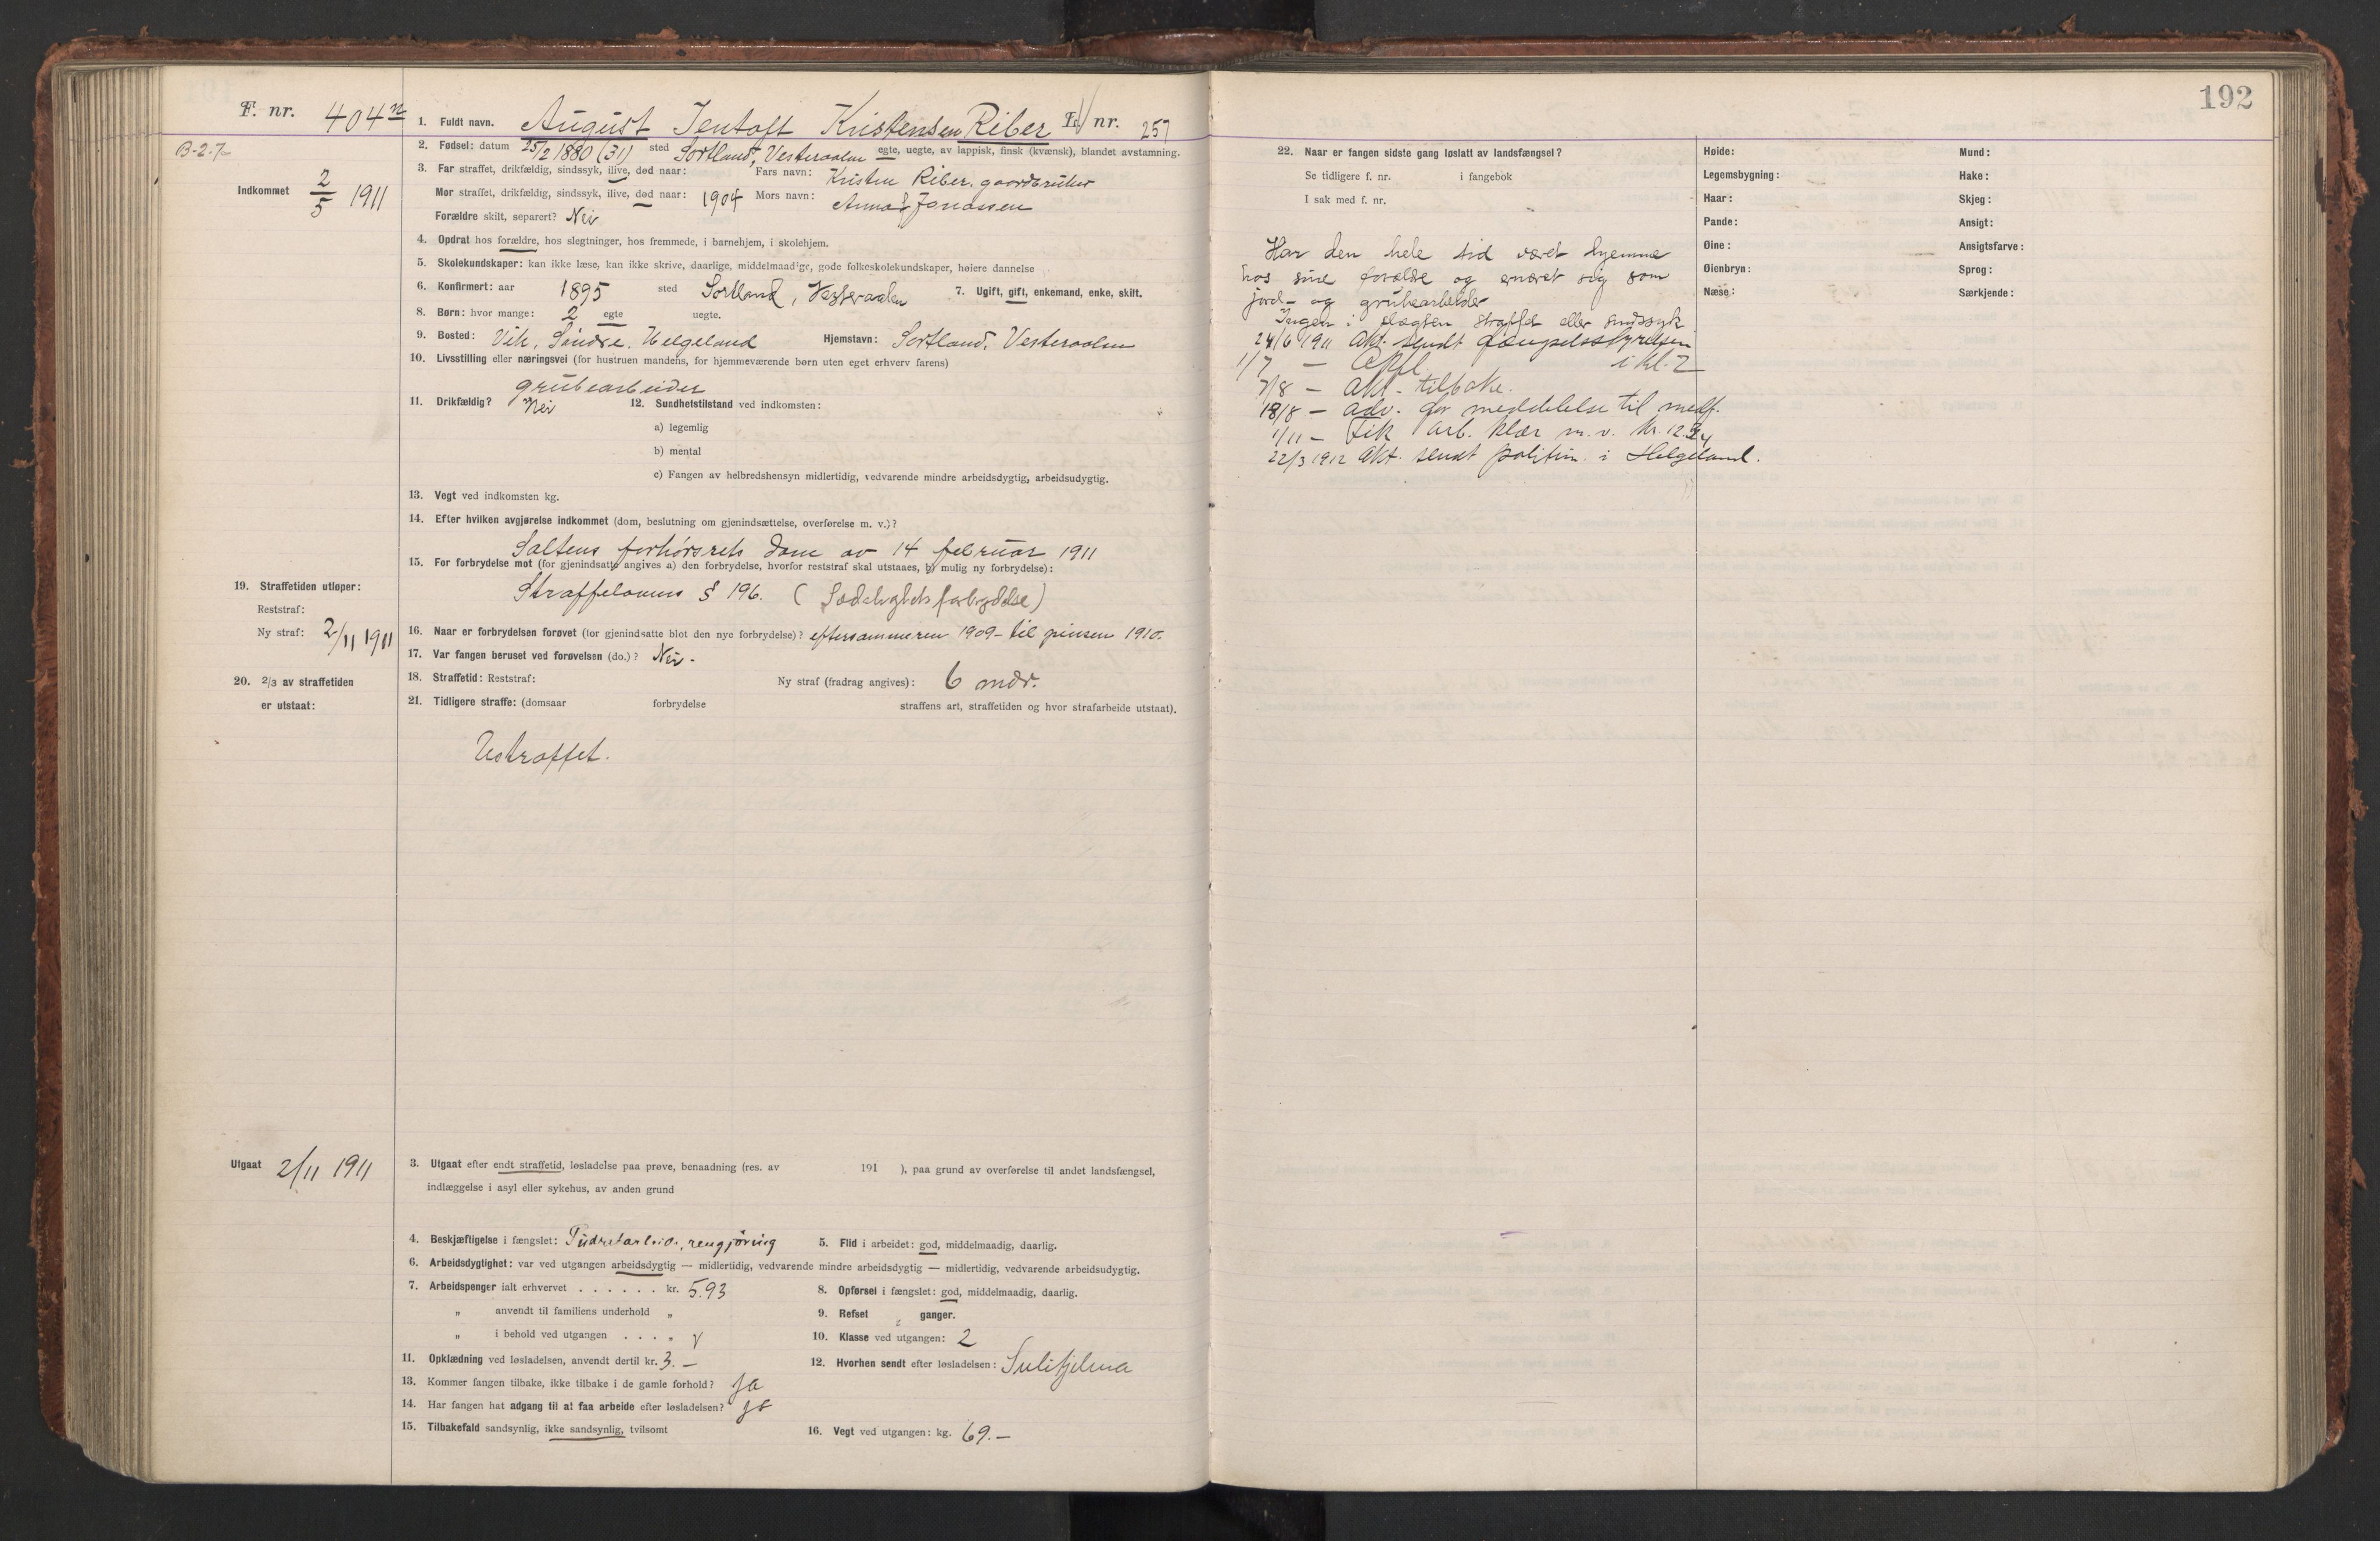 192
F. nr. 404 n
1. Fuldt navn. August Jentoft Kristensen Riber L. nr. 257
B-2-7
2. Fødsel: datum 25/2 1880 (31) sted Sortland, Vesteraalen egte, uegte, av lappisk, finsk (kvænsk), blandet avstamning.
Indkommet 2/5 1911
3. Far straffet, drikfældig, sindssyk, ilive, død naar: Fars navn: Kristen Riber. gaardbruker
Mor straffet, drikfældig, sindssyk, ilive, død naar: 1904 Mors navn: Anna Jonassen
Forældre skilt, separert? Nei
4. Opdrat hos forældre, hos slegtninger, hos fremmede, i barnehjem, i skolehjem.
5. Skolekundskaper: kan ikke læse, kan ikke skrive, daarlige, middelmaadige, gode folkeskolekundskaper, høiere dannelse
6. Konfirmert: aar 1895 sted Sortland, Vesteraalen 7. Ugift, gift, enkemand, enke, skilt.
8. Børn: hvor mange: 2 egte uegte.
9. Bosted: Vik, Søndre. Helgeland Hjemstavn: Sortland, Vesteraalen
10. Livsstilling eller næringsvei (for hustruen mandens, for hjemmeværende børn uten eget erhverv farens)
grubearbeider
11. Drikfældig? Nei 12. Sundhetstilstand ved indkomsten:
a) legemlig
b) mental
c) Fangen av helbredshensyn midlertidig, vedvarende mindre arbeidsdygtig, arbeidsudygtig.
13. Vegt ved indkomsten kg.
14. Efter hvilken avgjørelse indkommet (dom, beslutning om gjenindsættelse, overførelse m. v.)?
Saltens forhørsrets dom av 14 februar 1911
15. For forbrydelse mot (for gjenindsatte angives a) den forbrydelse, hvorfor reststraf skal utstaaes, b) mulig ny forbrydelse):
Straffelovens § 196. (Sædelighetsforbrydelse)
19. Straffetiden utløper:
Reststraf:
Ny straf: 2/11 1911
16. Naar er forbrydelsen forøvet (for gjenindsatte blot den nye forbrydelse)? eftersommeren 1909 - til pinsen 1910.
17. Var fangen beruset ved forøvelsen (do.)? Nei.
18. Straffetid: Reststraf: Ny straf (fradrag angives): 6 mdr.
20. 2/3 av straffetiden
er utstaat:
21. Tidligere straffe: (domsaar forbrydelse straffens art, straffetiden og hvor strafarbeide utstaat).
Ustraffet.
Utgaat 2/11 1911
3. Utgaat efter endt straffetid, løsladelse paa prøve, benaadning (res. av 191 ), paa grund av overførelse til andet landsfængsel,
indlæggelse i asyl eller sykehus, av anden grund
4. Beskjæftigelse i fængslet: Pudretarbeid., rengjøring 5. Flid i arbeidet: god, middelmaadig, daarlig.
6. Arbeidsdygtighet: var ved utgangen arbeidsdygtig — midlertidig, vedvarende mindre arbeidsdygtig — midlertidig, vedvarende arbeidsudygtig.
7. Arbeidspenger ialt erhvervet . . . . . . kr. 5.93 8. Opførsel i fængslet: god, middelmaadig, daarlig.
„ anvendt til familiens underhold „ 9. Refset „ ganger.
„ i behold ved utgangen . . . „ 10. Klasse ved utgangen: 2
11. Opklædning ved løsladelsen, anvendt dertil kr. 3.— 12. Hvorhen sendt efter løsladelsen: Sulitjelma
13. Kommer fangen tilbake, ikke tilbake i de gamle forhold? Ja
14. Har fangen hat adgang til at faa arbeide efter løsladelsen? ja
15. Tilbakefald sandsynlig, ikke sandsynlig, tvilsomt 16. Vegt ved utgangen: kg. 69.—
22. Naar er fangen sidste gang løslatt av landsfængsel?
Se tidligere f. nr. i fangebok
I sak med f. nr.
Har den hele tid været hjemme
hos sine forældre og ernæret sig som
jord- og grubearbeider
Ingen i slægten straffet eller sindssyk
24/6 1911 Akt. sendt fængselsstyrelsen
1/7 — Opfl. i kl. 2
7/8 — Akt. tilbake.
18/8 — adv. for meddelelse til medf.
1/11 — Fik arb. klær m. v. kr. 12.24
22/3 1912 Akt. sendt politim. i Helgeland.
Høide: Mund:
Legemsbygning: Hake:
Haar: Skjeg:
Pande: Ansigt:
Øine: Ansigtsfarve:
Øienbryn: Sprog:
Næse: Særkjende: